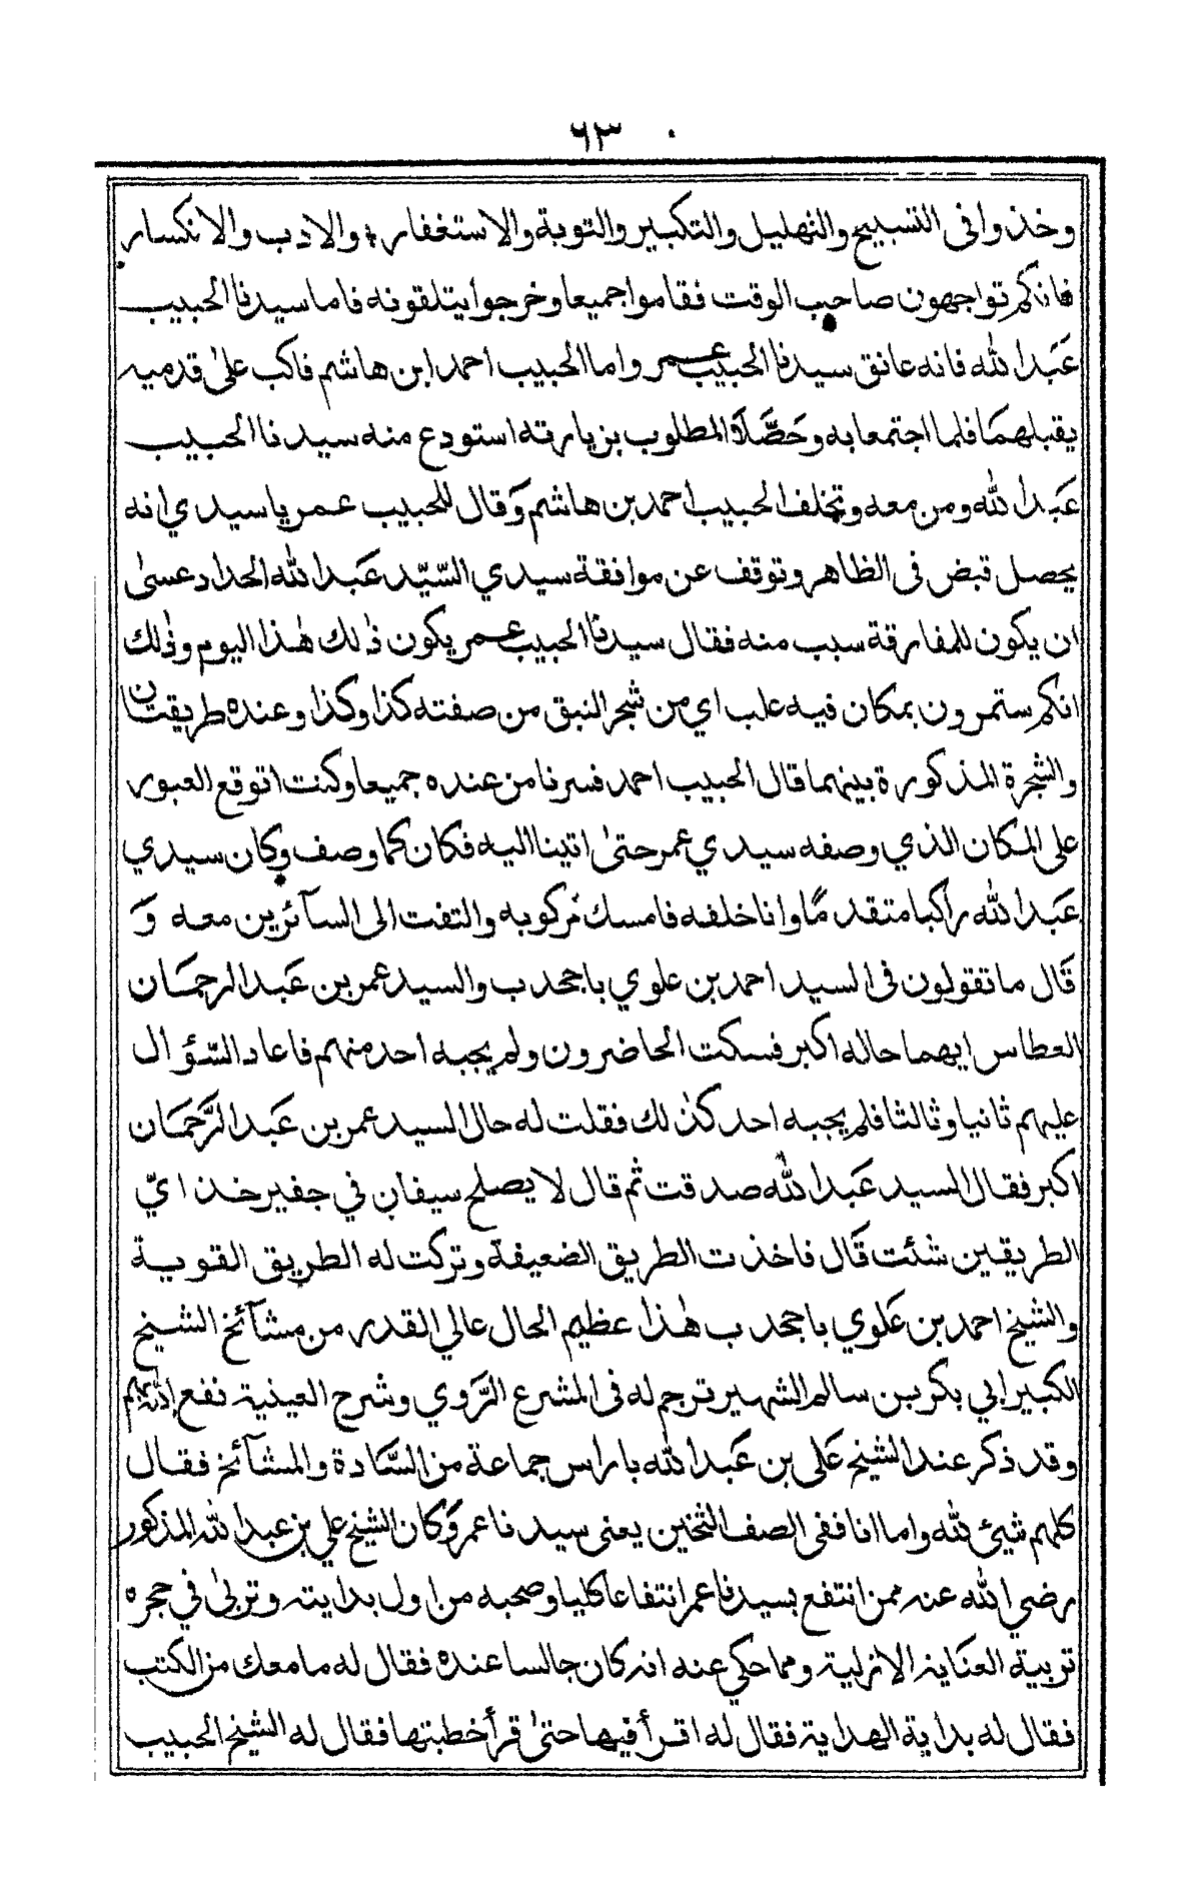 ٦٣
وخذوا فى التسبيح والتهليل والتكبير والتوبة والاستغفار والادب والانكسار
فانكم تواجهون صاحب الوقت فقاموا جميعا وخرجوا يتلقونه فاما سيدنا الحبيب
عَبَدالله فانه عانق سيدنا الحبيب عمر واما الحبيب احمد ابن هاشم فاكب علىٰ قدميه
يقبلهمَا فلما اجتمعا به وحَصَّلَا المطلوب بزيارته استودع منه سيدنا الحبيب
عَبَدالله ومن معه وتخلف الحبيب احمد بن هاشم وَقال للحبيب عمر يا سيدي انه
يحصل قبض فى الظاهر وتوقف عن موافقة سيدي السّيّد عَبدالله الحداد عسىٰ
ان يكون للمفارقة سبب منه فقال سيدنا الحبيب عمر يكون ذٰلك هٰذا اليوم وذٰلك
انكم ستمرون بمكان فيه علب اي من شجر النبق من صفته كذا وكذا وعنده طريقتان
والشجرة المذكورة بينهما قال الحبيب احمد فسرنا من عنده جميعا وكنت اتوقع العبور
على المكان الذي وصفه سيدي عمر حتىٰ اتينا اليه فكان كما وصف وكان سيدي
عَبدالله راكبا متقدمًا وانا خلفه فامسك مركوبه والتفت الى السآئرين معه وَ
قَال ما تقولون فى السيد احمد بن علوي باجحدب والسيد عمر بن عَبد الرحمَان
العطاس ايهما حاله اكبر فسكت الحاضرون ولم يجبه احد منهم فاعاد السّؤال
عليهم ثانيا وثالثا فلم يجبه احد كذٰلك فقلت له حال السيد عمر بن عَبد الرَّحمَان
اكبر فقال السيد عَبدالله صدقت ثم قال لا يصلح سيفان في جفير خذ ايّ
الطريقين شئت قَال فاخذت الطريق الضعيفة وتركت له الطريق القوية
والشيخ احمد بن عَلوي باجحدب هٰذا عظيم الحال عالي القدر من مشآئخ الشيخ
الكبير ابي بكر بن سالم الشهير ترجم له فى المشرع الرَّوي وشرح العينية نفع الله بهم
وقد ذكر عند الشيخ عَلى بن عَبدالله باراس جماعة من السَّادة والمشآئخ فقال
كلهم شيئ لله واما انا ففى الصف الثخين يعنى سيدنا عمر وَكان الشيخ علي بن عبدالله المذكور
رضي الله عنه ممن انتفع بسيدنا عمر انتفاعا كليا وصحبه من اول بدايته وتربىٰ في حجره
تربية العنَاية الازلية ومما حكي عنه انه كان جالسا عنده فقال له ما معك من الكتب
فقال له بداية الهداية فقال له اقرأ فيها حتىٰ قرأ خطبتها فقال له الشيخ الحبيب